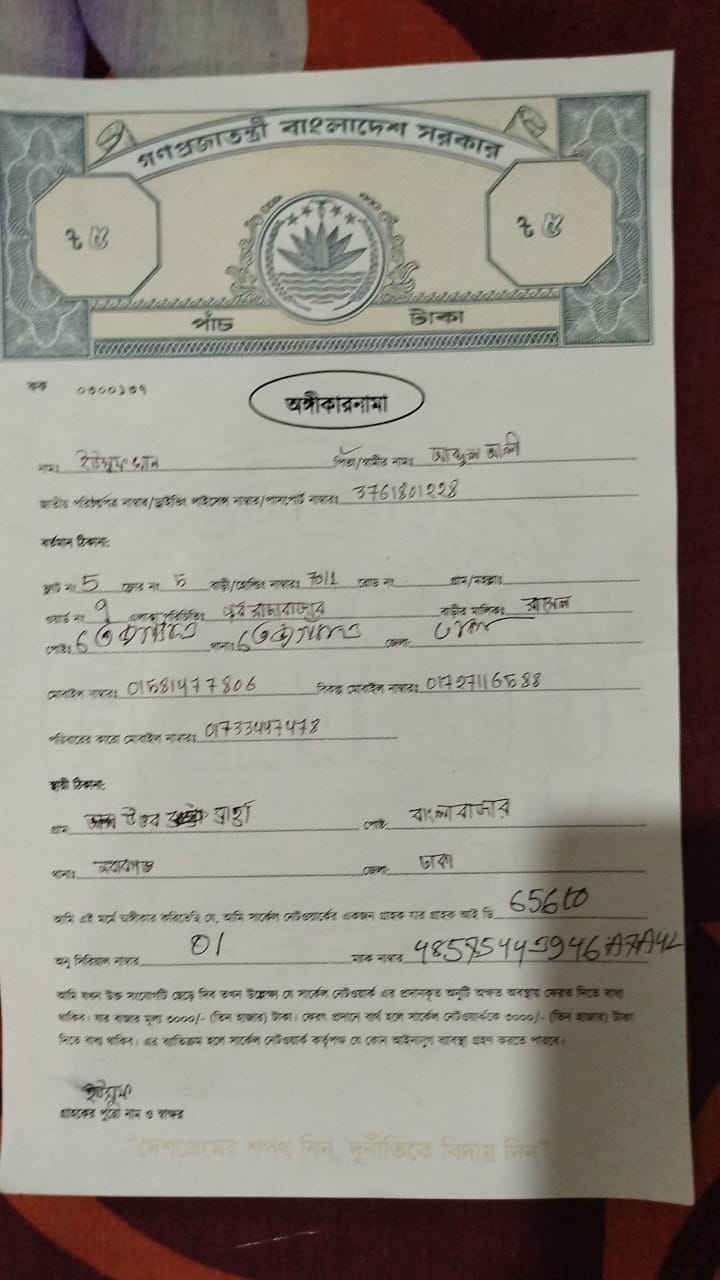 গণপ্রজাতন্ত্রী বাংলাদেশ সরকার
৳ ৫ ৳ ৫
পাঁচ টাকা
কক ০৩০০১৩৭
অঙ্গীকারনামা
নামঃ ইউসুফ খান পিতা/স্বামীর নামঃ আব্দুল আলী
জাতীয় পরিচয়পত্র নাম্বার/ড্রাইভিং লাইসেন্স নাম্বার/পাসপোর্ট নাম্বারঃ 3761801228
বর্তমান ঠিকানা:
ফ্লাট নং 5 ফ্লোর নং 5 বাড়ী/হোল্ডিং নাম্বারঃ 70/1 রোড নং গ্রাম/মহল্লাঃ
ওয়ার্ড নং এলাকা পরিচিতিঃ পূর্ব রাজাবাজার বাড়ীর মালিকঃ রাসেল
পোষ্টঃ তেজগাঁও থানাঃ তেজগাঁও জেলা:
মোবাইল নাম্বারঃ 01581477806 বিকল্প মোবাইল নাম্বারঃ 01727116588
পরিবারের কারো মোবাইল নাম্বারঃ 01733497478
স্থায়ী ঠিকানা:
গ্রামঃ উত্তর পোষ্ট: বাংলাবাজার
থানাঃ নবাবগঞ্জ জেলা: ঢাকা
আমি এই মর্মে অঙ্গীকার করিতেছি যে, আমি সার্কেল নেটওয়ার্কের একজন গ্রাহক যার গ্রাহক আই ডি 65610
অনু সিরিয়াল নাম্বার 01 ম্যাক নাম্বার
আমি যখন উক্ত সংযোগটি ছেড়ে দিব তখন উল্লেক্ষ্য যে সার্কেল নেটওয়ার্ক এর প্রদানকৃত অনুটি অক্ষত অবস্থায় ফেরত দিতে বাধ্য
থাকিব। যার বাজার মূল্য ৩০০০/- (তিন হাজার) টাকা। ফেরৎ প্রদানে ব্যর্থ হলে সার্কেল নেটওয়ার্ককে ৩০০০/- (তিন হাজার) টাকা
দিতে বাধ্য থাকিব। এর ব্যতিক্রম হলে সার্কেল নেটওয়ার্ক কর্তৃপক্ষ যে কোন আইনানুগ ব্যবস্থা গ্রহণ করতে পারবে।
ইউসুফ
গ্রাহকের পুরো নাম ও স্বাক্ষর
"দেশপ্রেমের শপথ নিন, দুর্নীতিকে বিদায় দিন"